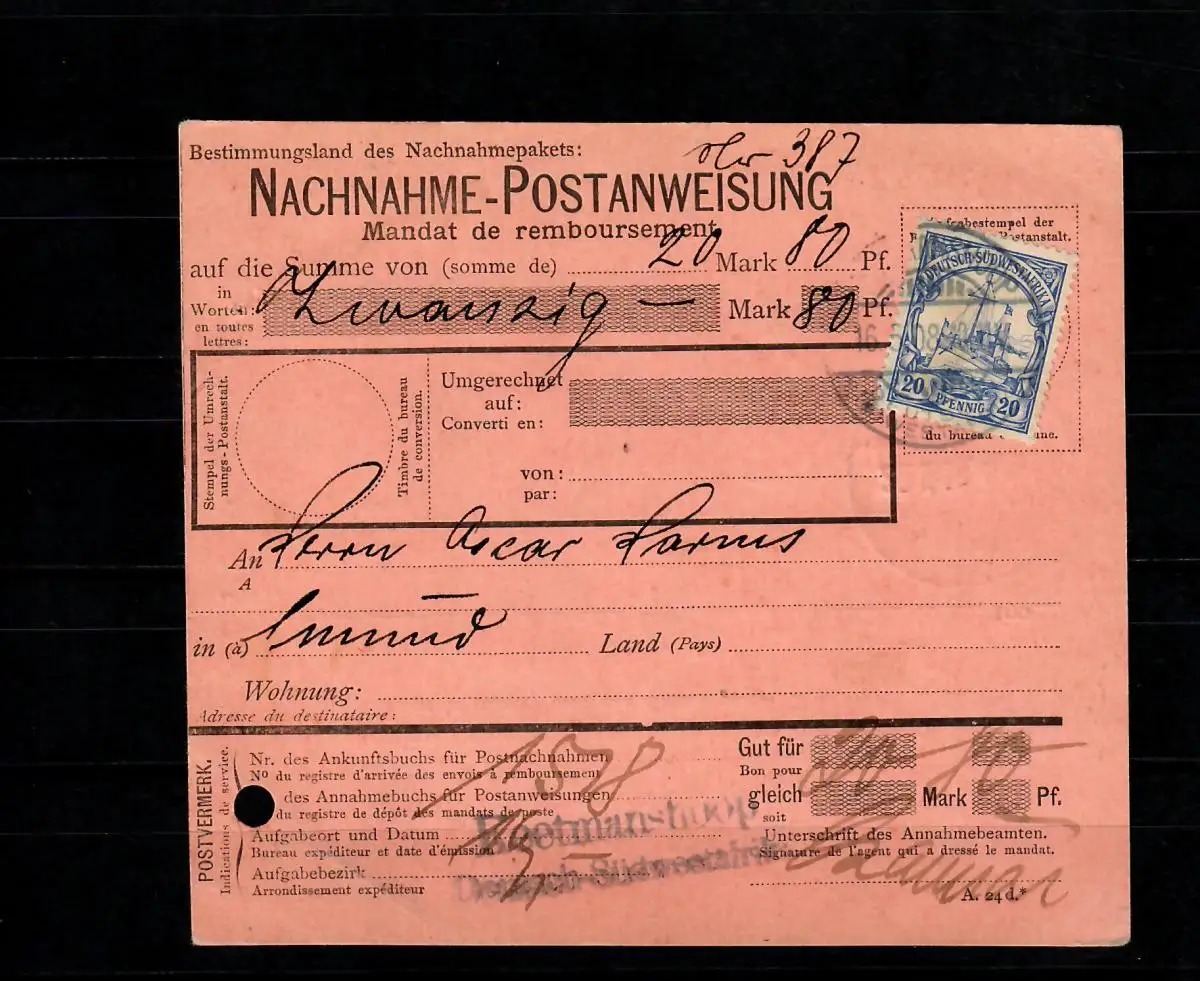 Bestimmungsland des Nachnahmepakets:
387
NACHNAHME-POSTANWEISUNG
Mandat de remboursement
auf die Summe von (somme de) 20 Mark 80 Pf.
in Worten: Zwanzig — Mark 80 Pf.
en toutes lettres:
bestempel der
Postanstalt.
DEUTSCH-SÜDWESTAFRIKA
20 PFENNIG 20
du bureau
Stempel der Umrechnungs-Postanstalt.
Timbre du bureau de conversion.
Umgerechnet auf:
Converti en:
von:
par:
An Herrn Oscar
A
in (à) Gmünd Land (Pays)
Wohnung:
Adresse du destinataire:
POSTVERMERK.
Indications de service.
Nr. des Ankunftsbuchs für Postnachnahmen
No du registre d'arrivée des envois à remboursement
des Annahmebuchs für Postanweisungen
du registre de dépôt des mandats de poste
Aufgabeort und Datum
Bureau expéditeur et date d'émission
Aufgabebezirk
Arrondissement expéditeur
Keetmanshoop
Deutsch-Südwestafrika
Gut für
Bon pour
gleich Mark Pf.
soit
Unterschrift des Annahmebeamten.
Signature de l'agent qui a dressé le mandat.
A. 24 d.*